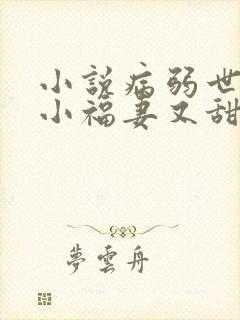 小說病弱世
小福妻又甜
夢雲舟